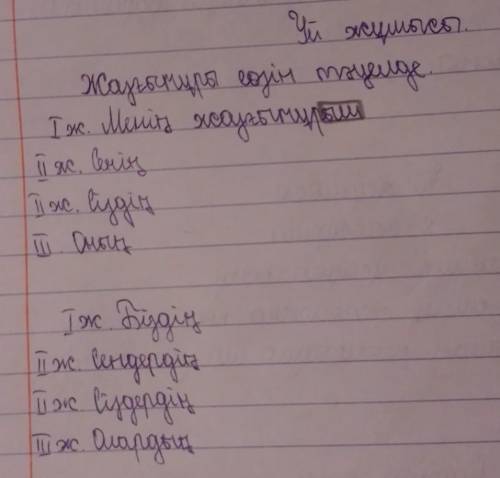 Үй жұмысы.
Жазғытұры сөзін тәуелде.
I ж. Менің жазғытұрым
II ж. Сенің
II ж. Сіздің
III. Оның
I ж. Біздің
II ж. Сендердің
II ж. Сіздердің
III ж. Олардың